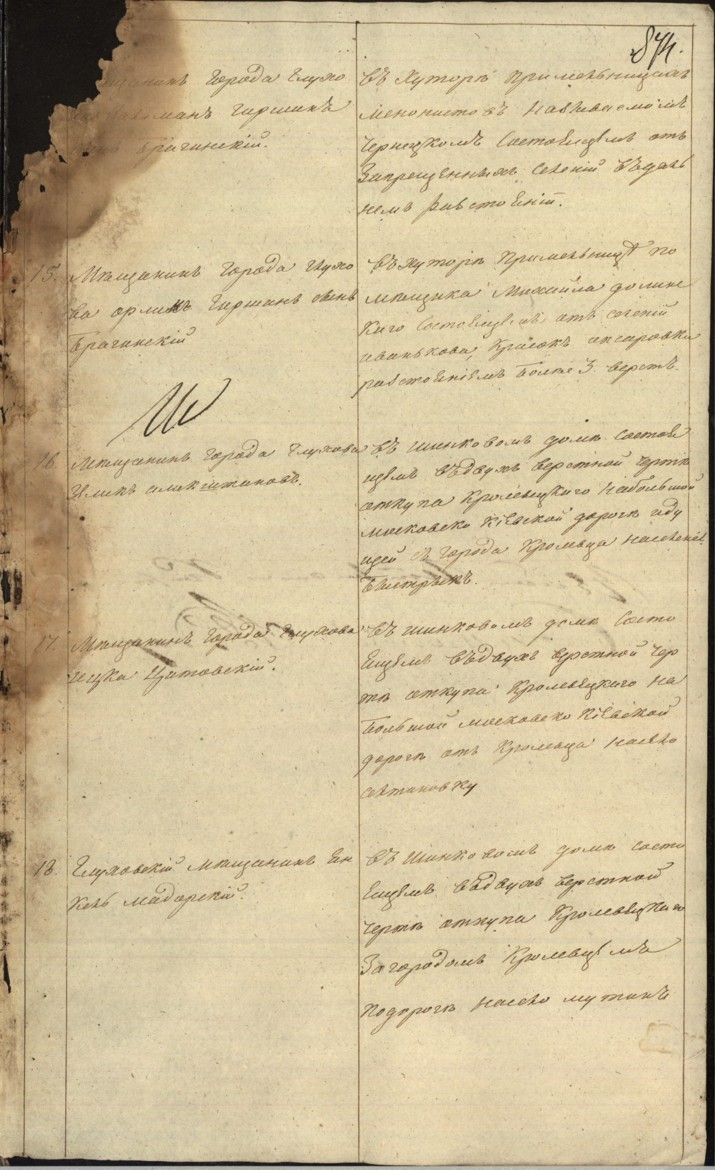 874.
города Глухо
Гиршинъ
Брагинскій.
въ хуторѣ
менонистовъ называемомъ
Чернецкомъ Состоящемъ отъ
Запрещенныхъ Селеній въ даль
немъ разстоеніи.
15. Мѣщанинъ города Глухо
ва Гиршинъ сынъ
Брагинскій
въ хуторѣ по
мѣщика Михайла долин
скаго Состоящемъ отъ селеній
иванькова,
разстоеніемъ более 3. верстъ.
16. Мѣщанинъ города Глухова
въ шинковомъ домѣ Состоя
щемъ въ двухъ верстной чертѣ
откупа Кролевецкого на большой
московско Кіевской дорогѣ иду
щей города Кролевца
17. Мѣщанинъ города Глухова
ицка Цитовскій.
въ шинковомъ домѣ Состо
ещемъ въ двухъ верстной чер
тѣ откупа Кролевецкого на
большой московско Кіевской
дорогѣ отъ Кролевца на село
18. Глуховскій мѣщанинъ Ян
кель мадарскій.
въ шинковомъ домѣ состо
ещемъ въ двухъ верстной
чертѣ откупа Кролевецкаго
За городомъ Кролевцемъ
по дорогѣ на село мутинъ